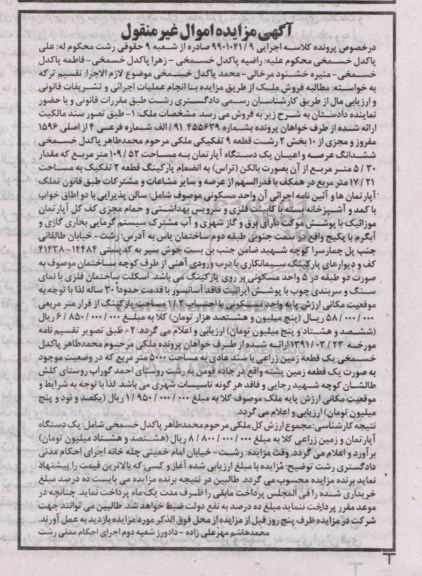 آگهی مزایده اموال غیر منقول
درخصوص پرونده کلاسه اجرایی ۹ /۹۹۰۱۰۴۱ صادره از شعبه ۹ حقوقی رشت محکوم له: علی
پاکدل خسمخی محکوم علیه: راضیه پاکدل خسمخی - زهرا پاکدل خسمخی - فاطمه پاکدل
خسمخی - منیره خشنود مرخالی - محمد پاکدل خسمخی موضوع لازم الاجرا: تقسیم ترکه
به خواسته: مطالبه فروش ملک از طریق مزایده با انجام عملیات اجرائی و تشریفات قانونی
و ارزیابی مال از طریق کارشناسان رسمی دادگستری رشت طبق مقررات قانونی و با حضور
نماینده دادستان به شرح زیر به فروش می رسد. مشخصات ملک: ۱- طبق تصویر سند مالکیت
ارائه شده از طرف خواهان پرونده بشماره ۴۵۵۶۳۹ / ۹۱ الف شماره فرعی ۴ از اصلی ۱۵۹۶
مفروز و مجزی از ۱۰ بخش ۲ رشت قطعه ۹ تفکیکی ملکی مرحوم محمدطاهر پاکدل خسمخی
ششدانگ عرصه و اعیان یک دستگاه آپارتمان به مساحت ۵۲ / ۱۰۹ متر مربع که مقدار
۳۰ / ۵ متر مربع از آن بصورت بالکن (تراس) به انضمام پارکینگ قطعه ۲ تفکیک به مساحت
۲۱ / ۱۷ متر مربع در همکف با قدرالسهم از عرصه و سایر مشاعات و مشترکات طبق قانون تملک
آپارتمان ها و آئین نامه اجرائی آن واحد مسکونی موصوف شامل: سالن پذیرایی با دو اطاق خواب
با کمد و آشپزخانه بسته با کابینت فلزی و سرویس بهداشتی و حمام مجزی کف کل آپارتمان
موزائیک با پوشش موکت دارای برق و گاز شهری و آب مشترک سیستم گرمایی بخاری گازی و
آبگرم با پکیج واقع در سمت جنوبی طبقه دوم ساختمان یاس به آدرس: رشت - خیابان طالقانی
جنب پل چمارسرا کوچه شهید ضامن جنب بن بست خوش سیر به کد پستی ۱۴۴۸۴ - ۴۱۴۳۸
کف و دیوارهای پارکینگ سیمانکاری با درب ورودی آهنی از طرف کوچه ساختمان موصوف به
صورت دو طبقه در ۵ واحد مسکونی بر روی پارکینگ می باشد. اسکلت ساختمان فلزی با نمای
سنگ و سربندی چوب با پوشش ایرانیت فاقد آسانسور با قدمت حدوداً ۳۰ ساله لذا با توجه به
موقعیت مکانی ارزش پایه واحد مسکونی با احتساب ۱/۲ مساحت پارکینگ از قرار متر مربعی
۰۰۰ / ۰۰۰ / ۵۸ ریال (پنج میلیون و هشتصد هزار تومان) کلاً به مبلغ ۰۰۰ / ۰۰۰ / ۸۵۰ / ۶ ریال
(ششصد و هشتاد و پنج میلیون تومان) ارزیابی و اعلام می گردد. ۲- طبق تصویر تقسیم نامه
مورخه ۲۳ / ۰۳ / ۱۳۹۱ ارائه شده از طرف خواهان پرونده ملکی مرحوم محمدطاهر پاکدل
خسمخی یک قطعه زمین زراعی با سند عادی به مساحت ۵۰۰۰ متر مربع که در وضعیت موجود
به صورت یک قطعه زمین پشته واقع در جاده فومن به رشت روستای احمد گوراب روستای کلش
طالشان کوچه شهید رجایی و فاقد هر گونه تاسیسات شهری می باشد. لذا با توجه به شرایط و
موقعیت مکانی ارزش پایه ملک موصوف کلاً به مبلغ ۰۰۰ / ۰۰۰ / ۹۵۰ / ۱ ریال (یکصد و نود و پنج
میلیون تومان) ارزیابی و اعلام می گردد.
نتیجه کارشناسی: مجموع ارزش کل ملکی مرحوم محمدطاهر پاکدل خسمخی شامل: یک دستگاه
آپارتمان و زمین زراعی کلاً به مبلغ ۰۰۰ / ۰۰۰ / ۸۰۰ / ۸ ریال (هشتصد و هشتاد میلیون تومان)
برآورد و اعلام می گردد. وقت مزایده: رشت - خیابان امام خمینی چله خانه اجرای احکام مدنی
دادگستری رشت توضیح: مزایده با مبلغ ارزیابی شده آغاز و کسی که بالاترین قیمت را پیشنهاد
نماید برنده مزایده محسوب می گردد. طالبین در نتیجه برنده مزایده می بایست ده درصد مبلغ
خریداری شده را فی المجلس پرداخت مابقی را ظرف مدت یک ماه پرداخت نماید. چنانچه در
موعد مقرر پرداخت ننماید مبلغ ده درصد به نفع دولت ضبط خواهد شد. طالبین می توانند جهت
شرکت در مزایده ظرف پنج روز قبل از مزایده از محل فوق الذکر مورد مزایده بازدید به عمل آورند.
محمدهاشم مهرعلی زاده - دادورز شعبه دوم اجرای احکام مدنی رشت